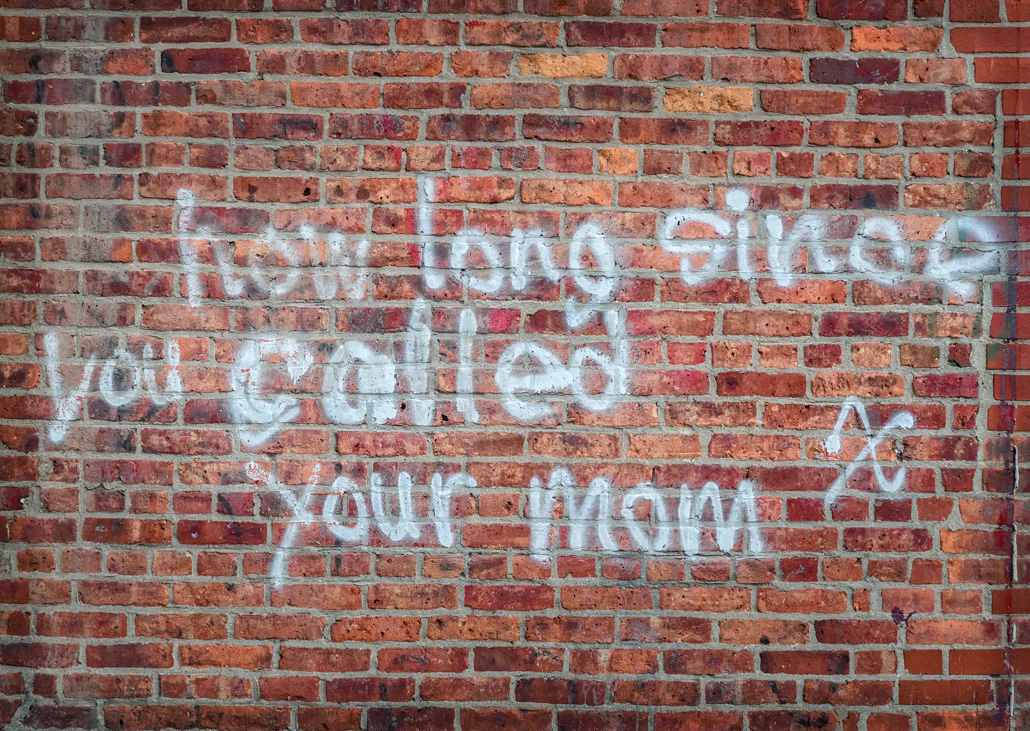 how long since
you called
your mom x